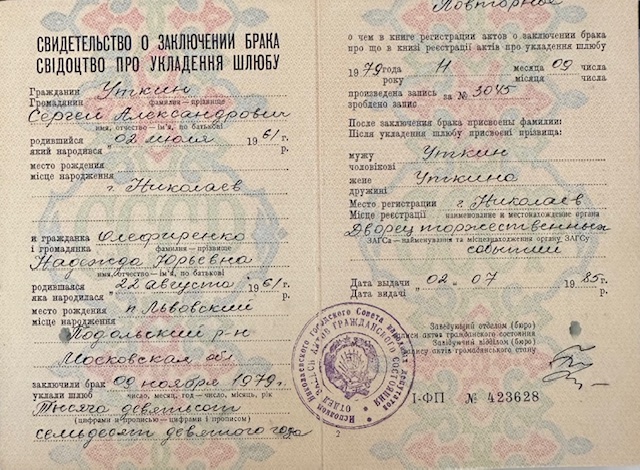 СВИДЕТЕЛЬСТВО О ЗАКЛЮЧЕНИИ БРАКА
СВІДОЦТВО ПРО УКЛАДЕННЯ ШЛЮБУ
Гражданин Уткин
Громадянин фамилия – прізвище
Сергей Александрович
имя, отчество – ім'я, по батькові
родившийся 02 июля 1961 г.
який народився р.
место рождения
місце народження
г. Николаев
и гражданка Олефиренко
і громадянка фамилия – прізвище
Надежда Юрьевна
имя, отчество – ім'я, по батькові
родившаяся 22 августа 1961 г.
яка народилася р.
место рождения п. Львовский
місце народження
Подольский р-н
Московская обл
заключили брак 09 ноября 1979 г.
уклали шлюб число, месяц, год – число, місяць, рік
Тысяча девятьсот
(цифрами и прописью – цифрами і прописом)
семьдесят девятого года
Повторное
о чем в книге регистрации актов о заключении брака
про що в книзі реєстрації актів про укладення шлюбу
1979 года 11 месяца 09 числа
року місяця числа
произведена запись за № 3045
зроблено запис
После заключения брака присвоены фамилии:
Після укладення шлюбу присвоєні прізвища:
мужу Уткин
чоловікові
жене Уткина
дружині
Место регистрации г. Николаев
Місце реєстрації наименование и местонахождение органа
Дворец торжественных
ЗАГСа – найменування та місцезнаходження органу ЗАГСу
событий
Дата выдачи 02 07 1985 г.
Дата видачі р.
Заведующий отделом (бюро)
записи актов гражданского состояния
Завідуючий відділом (бюро)
запису актів громадянського стану
I-ФП № 423628
2